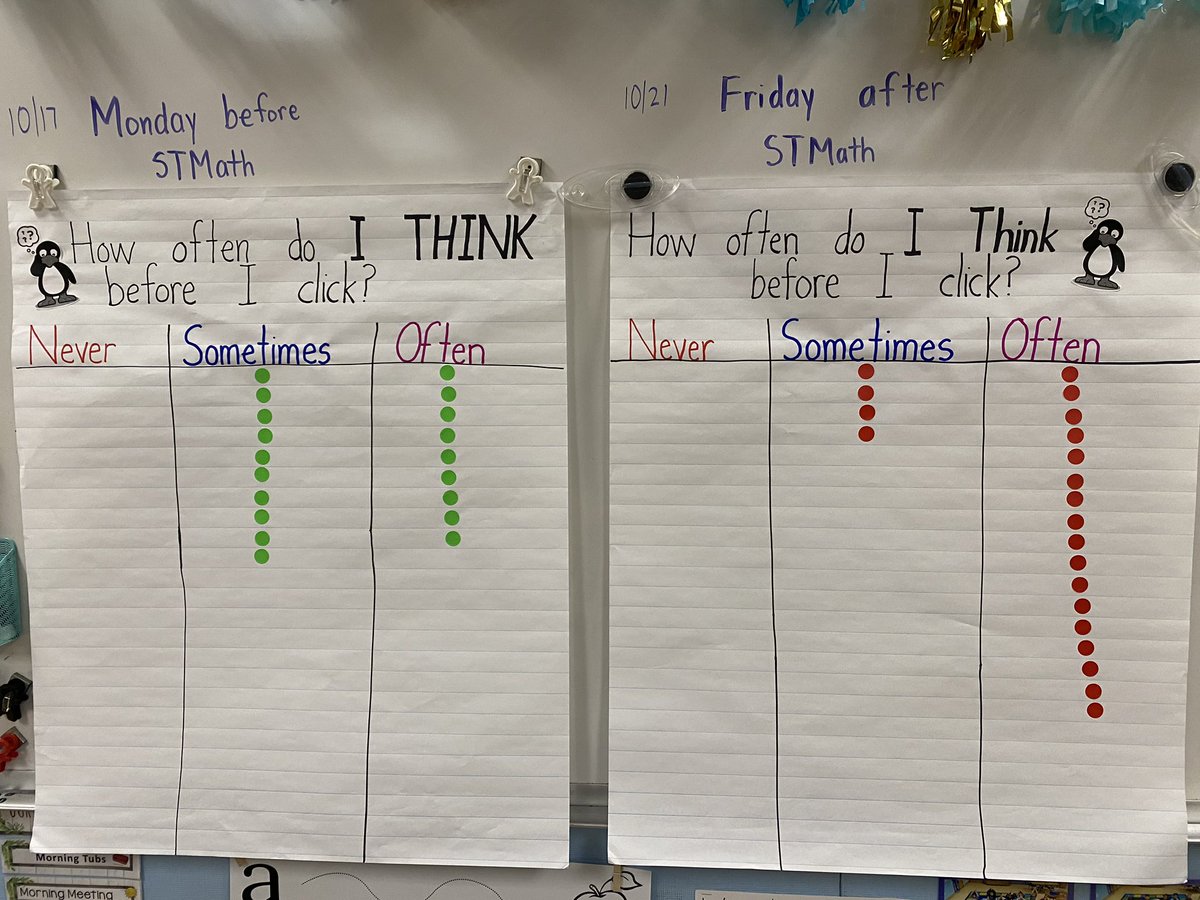 10/17 Monday before
STMath
How often do I THINK
before I click?
Never Sometimes Often
10/21 Friday after
STMath
How often do I Think
before I click?
Never Sometimes Often
Morning Tubs
Morning Meeting
a